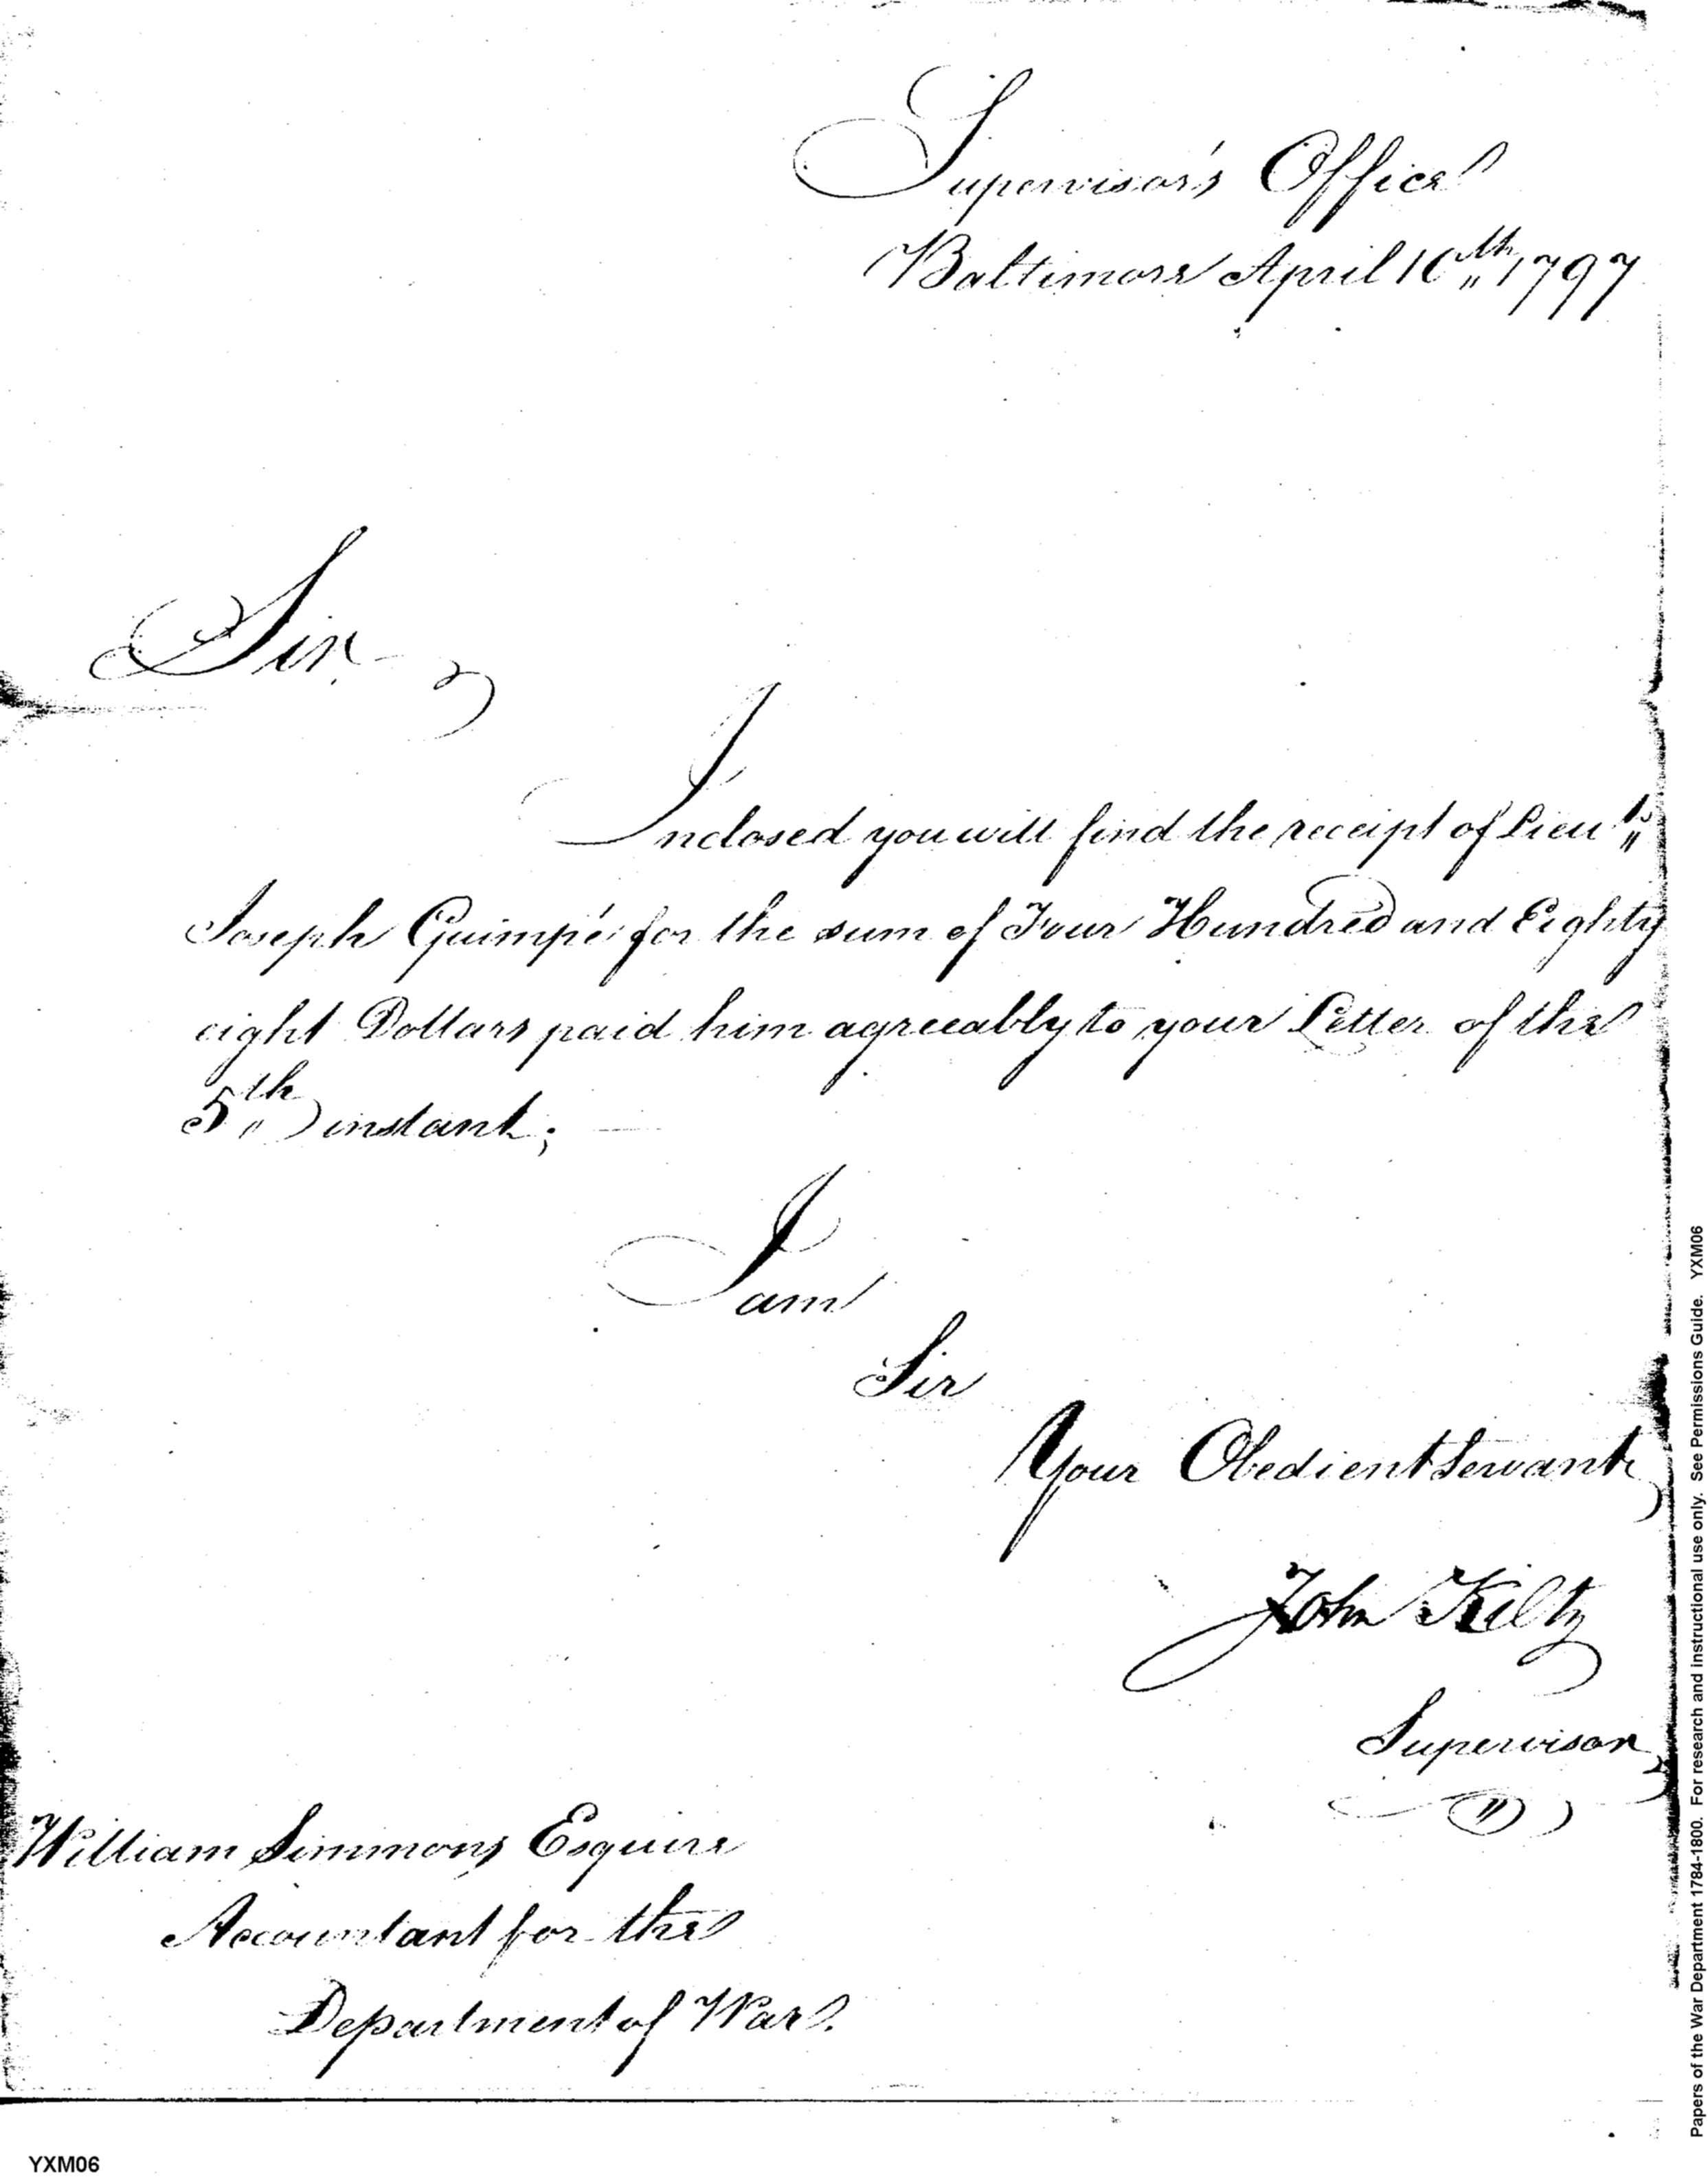 Supervisor's Office
Baltimore April 10th 1797
Sir
Inclosed you will find the receipt of Lieut.
Joseph Guimpé for the sum of Four Hundred and Eighty
eight Dollars paid him agreeably to your Letter of the
5th instant;
I am
Sir
Your Obedient Servant
John Kilty
Supervisor
William Simmons Esquire
Accountant for the
Department of War.
YXM06
Papers of the War Department 1784-1800. For research and instructional use only. See Permissions Guide. YXM06